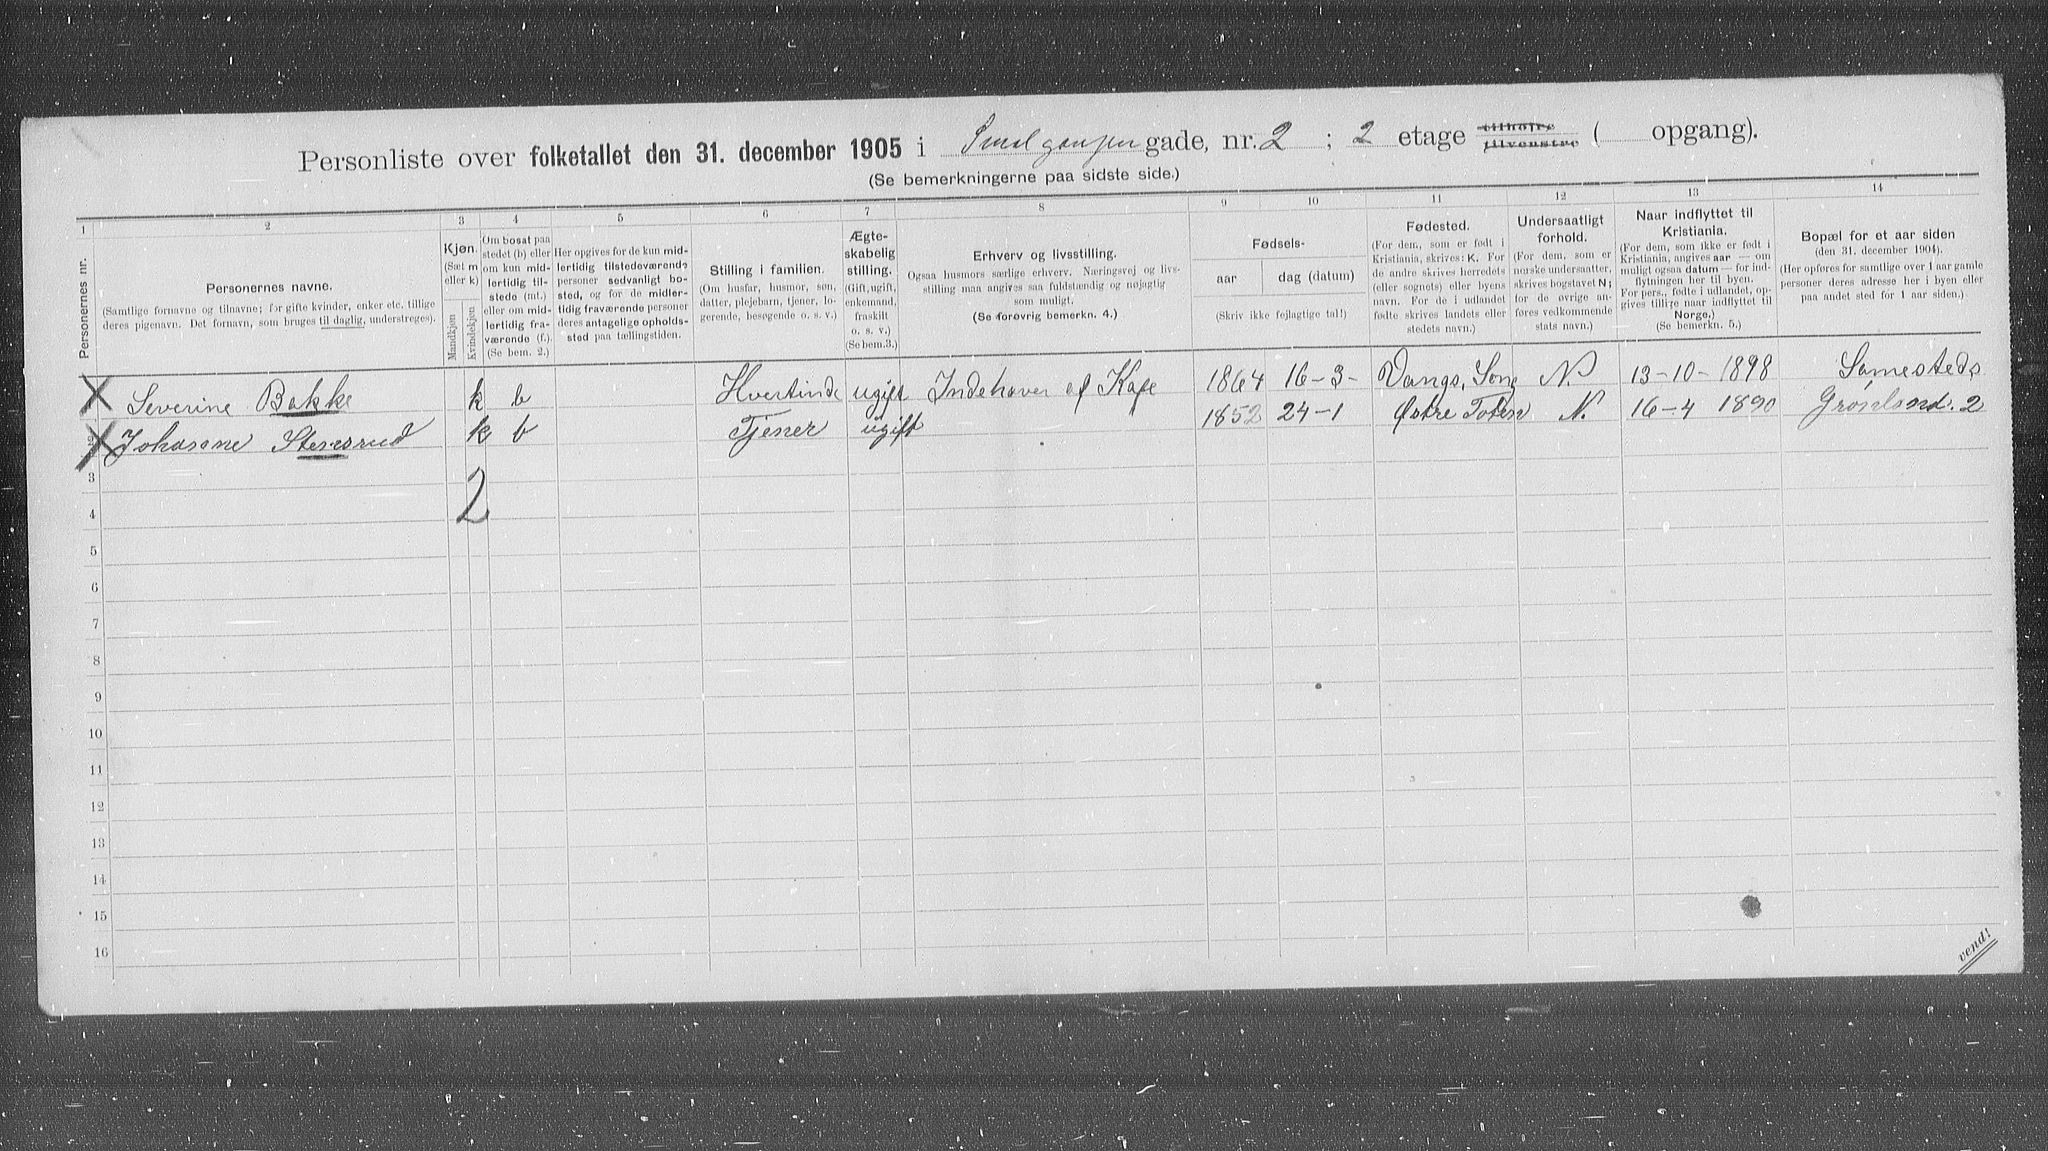 Personliste over folketallet den 31. december 1905 i Smalgangen gade, nr. 2 ; 2 etage tilhøjre tilvenstre ( opgang).
(Se bemerkningerne paa sidste side.)
1 2 3 4 5 6 7 8 9 10 11 12 13 14
Personernes nr.
Personernes navne.
(Samtlige fornavne og tilnavne; for gifte kvinder, enker etc. tillige
deres pigenavn. Det fornavn, som bruges til daglig, understreges).
Kjøn.
(Sæt m
eller k)
Mandkjøn
Kvindekjøn
Om bosat paa
stedet (b) eller
om kun mid-
lertidig til-
stede (mt.)
eller om mid-
lertidig fra-
værende (f.).
(Se bem. 2.)
Her opgives for de kun mid-
lertidig tilstedeværende
personer sedvanligt bo-
sted, og for de midler-
tidig fraværende personer
deres antagelige opholds-
sted paa tællingstiden.
Stilling i familien.
(Om husfar, husmor, søn,
datter, plejebarn, tjener, lo-
gerende, besøgende o. s. v.)
Ægte-
skabelig
stilling.
(Gift, ugift,
enkemand,
fraskilt
o. s. v.)
(Se bem. 3.)
Erhverv og livsstilling.
Ogsaa husmors særlige erhverv. Næringsvej og livs-
stilling maa angives saa fuldstændig og nøjagtig
som muligt.
(Se forøvrig bemerkn. 4.)
Fødsels-
aar
dag (datum)
(Skriv ikke fejlagtige tal!)
Fødested.
(For dem, som er født i
Kristiania, skrives: K. For
de andre skrives herredets
(eller sognets) eller byens
navn. For de i udlandet
fødte skrives landets eller
stedets navn.)
Undersaatligt
forhold.
(For dem, som er
norske undersaatter,
skrives bogstavet N;
for de øvrige an-
føres vedkommende
stats navn.)
Naar indflyttet til
Kristiania.
(For dem, som ikke er født i
Kristiania, angives aar — om
muligt ogsaa datum — for ind-
flytningen her til byen.
For pers., fødte i udlandet, op-
gives tillire naar indflyttet til
Norge.)
(Se bemerkn. 5.)
Bopæl for et aar siden
(den 31. december 1904).
(Her opføres for samtlige over 1 aar gamle
personer deres adresse her i byen eller
paa andet sted for 1 aar siden.)
Severine Bakke k b Husfrinde ugift Indehaver af Kafe 1864 16-3- Vangs, Sone N. 13-10-1898 Sameesteds
Johanne Stensrud k b Tjener ugift 1852 24-1 Østre Toten N. 16-4 1890 Grønland. 2
2
3
4
5
6
7
8
9
10
11
12
13
14
15
16
vend!